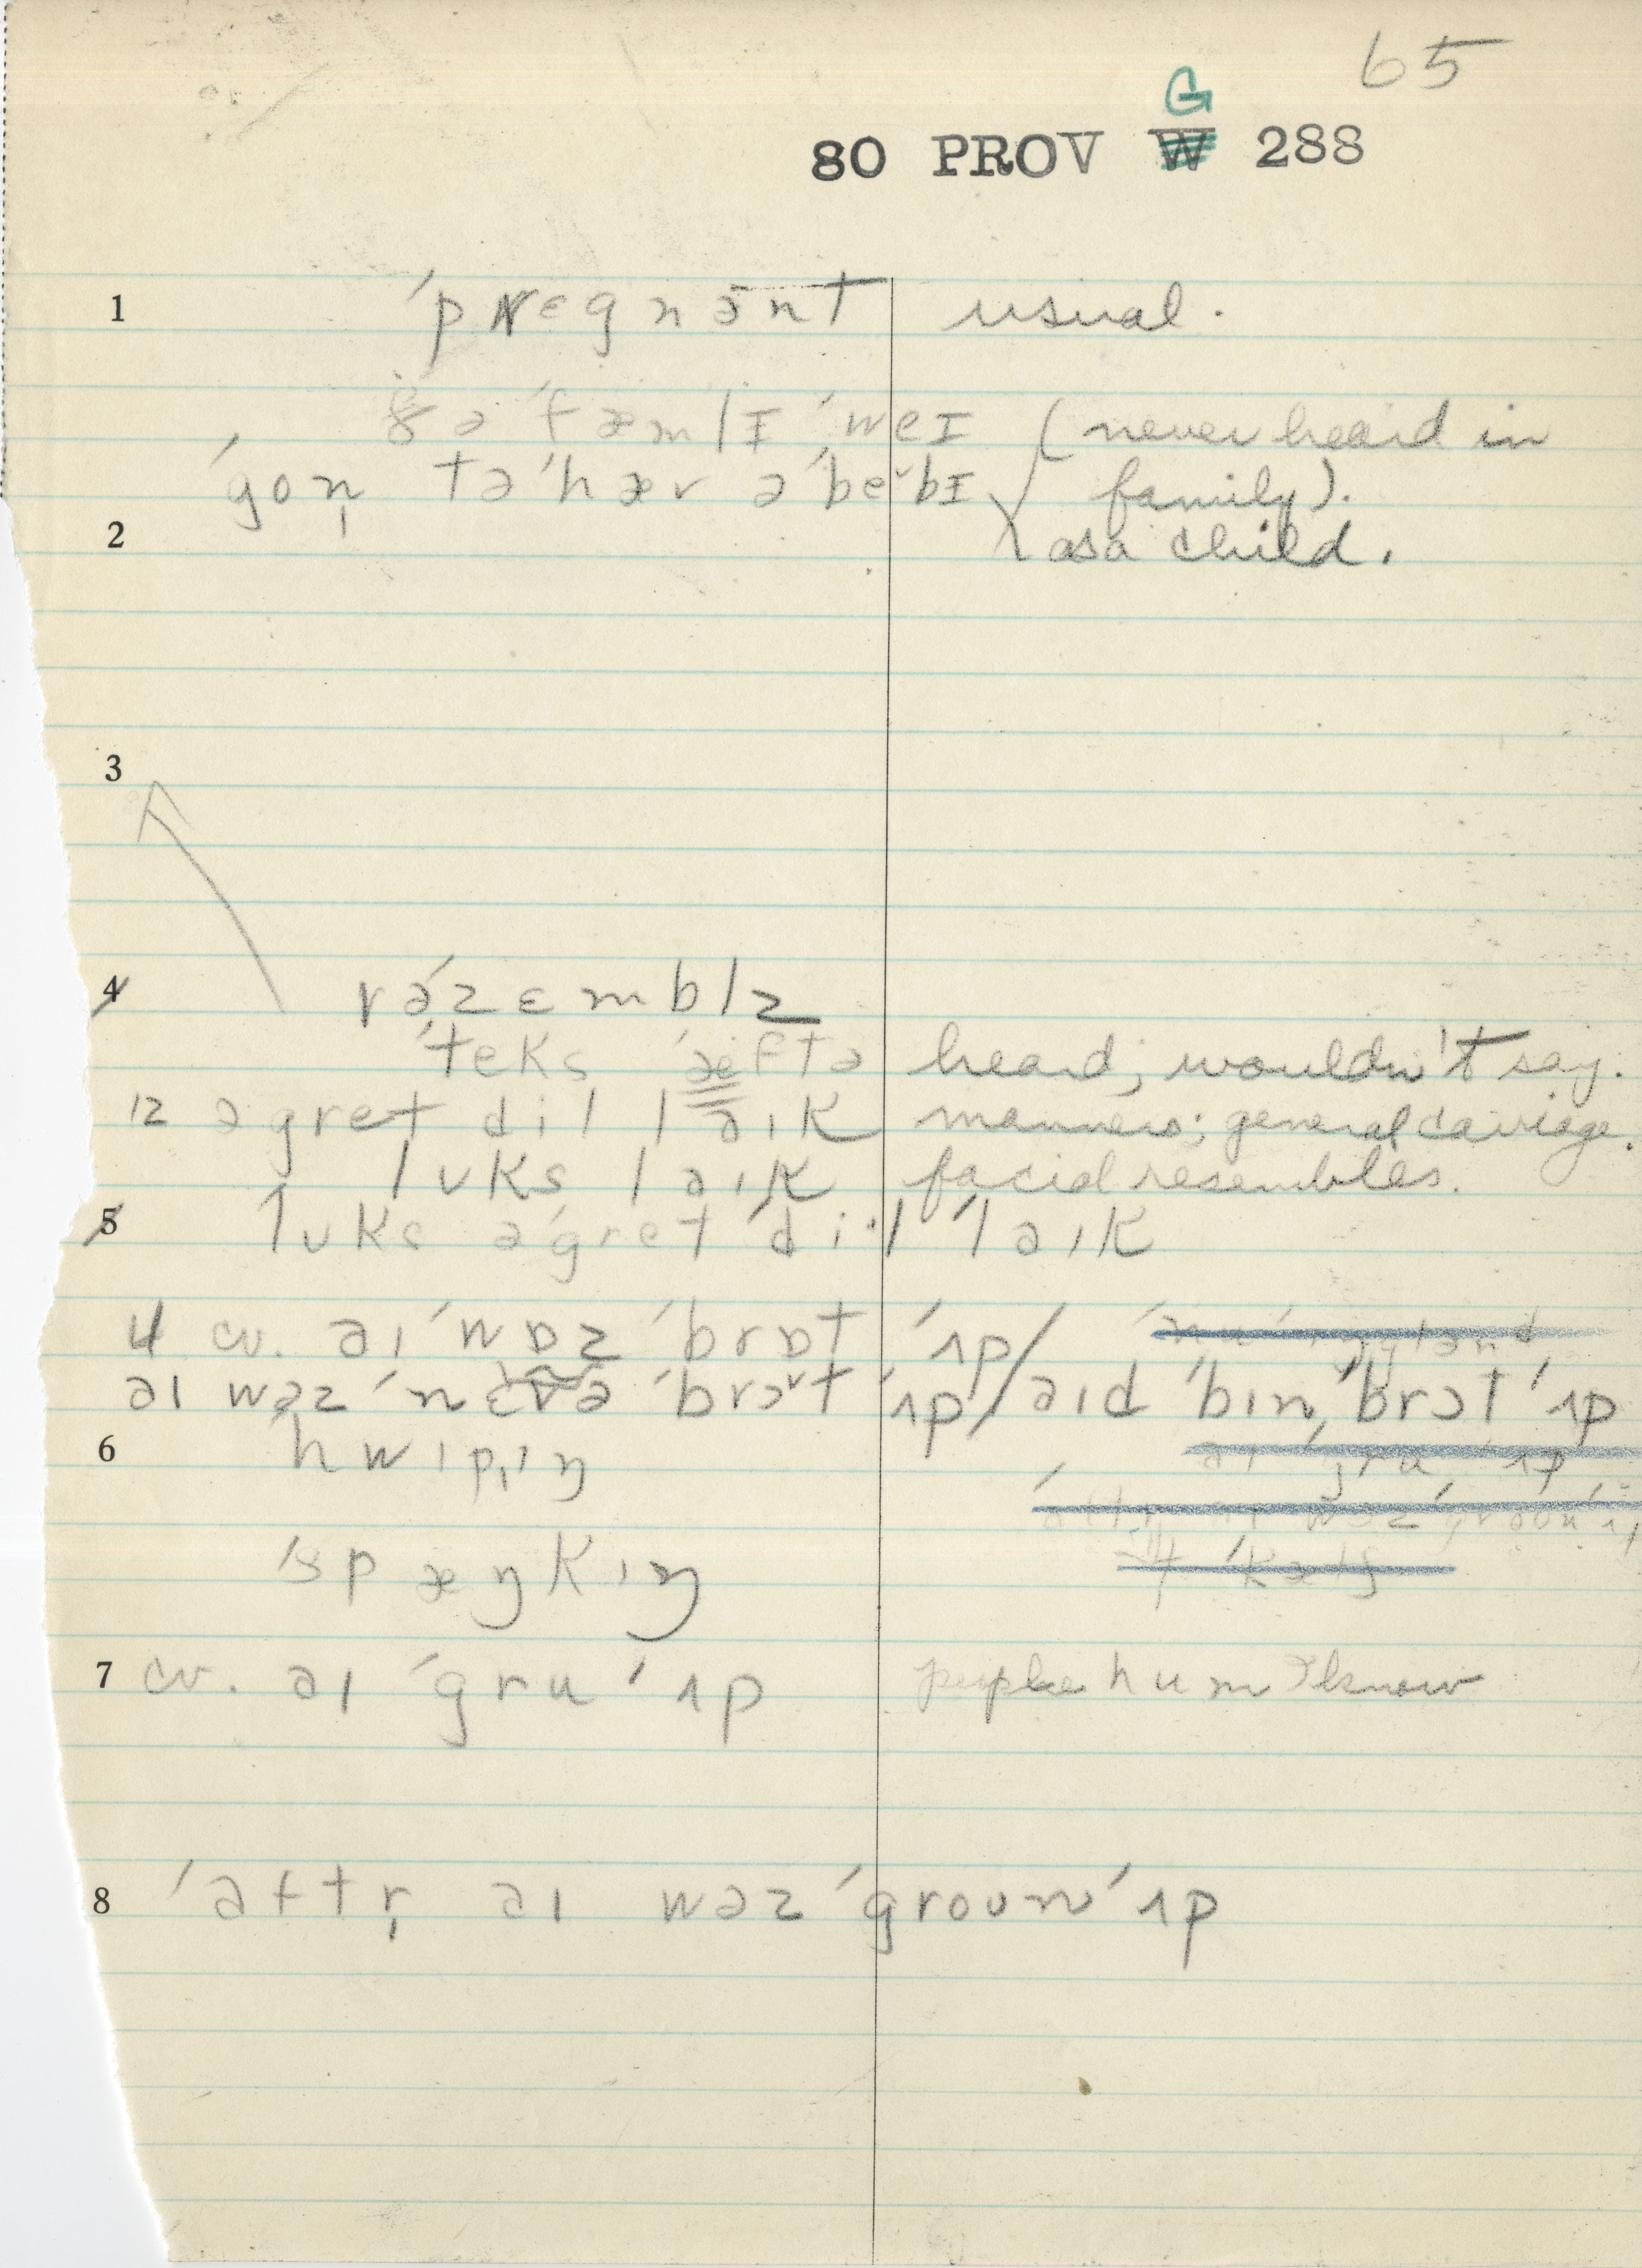 65
G
80 PROV W 288
1 ˈprɛgnənt usual.
ðə ˈfæmlɪ ˈweɪ (never heard in
ˈgon̩ tə ˈhæv ə ˈbebɪ family).
2 as a child.
3
4 rəˈzɛmblz
ˈteks ˈæftə heard; wouldn't say.
12 ə gret dil laɪk manners; general carriage.
lʊks laɪk facial resembles.
5 lʊks ə ˈgret ˈdi·l ˈlaɪk
4 cv. aɪ ˈwɒz ˈbrɒt ˈʌp/
aɪ wəz ˈnɛvə ˈbrɔt ˈʌp/aɪd ˈbɪn ˈbrɔt ˈʌp
6 ˈhwɪpɪŋ
ˈspæŋkɪŋ
7 cv. aɪ ˈgru ˈʌp people hum I know
8 ˈaftr̩ aɪ wəz ˈgroun ˈʌp